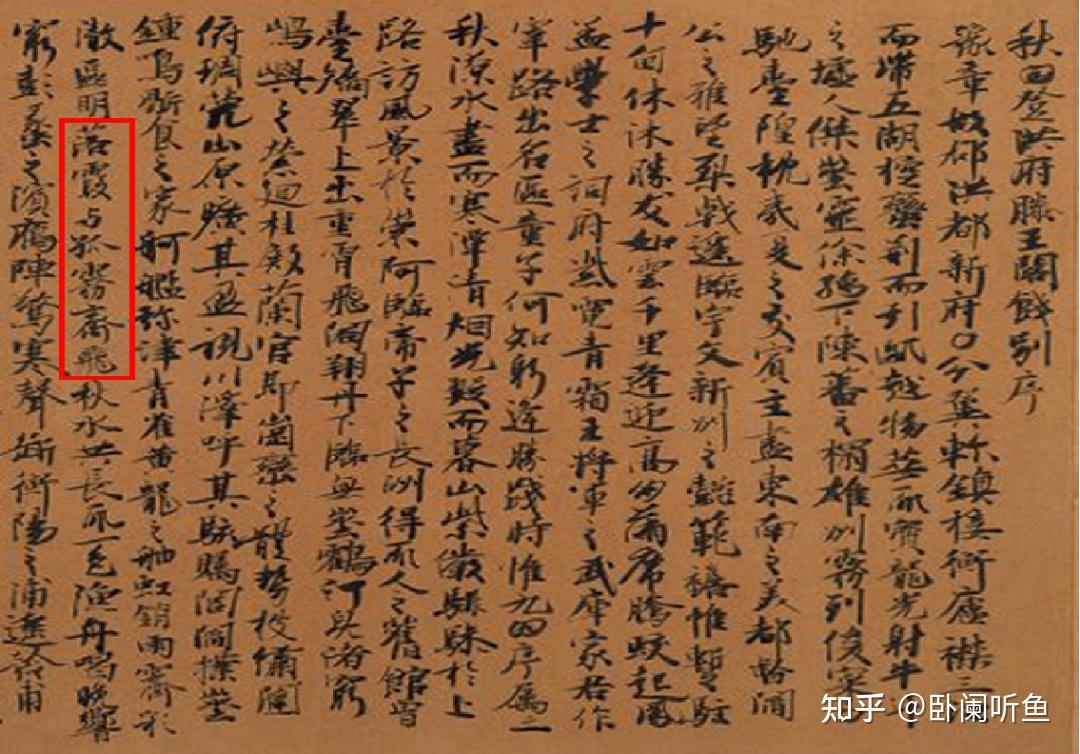 秋𡆠登洪府滕王閣餞別序
豫章故郡洪都新府〇分翼軫鎮接衡廬襟三
而帶五湖控蠻荊而引甌越物華𠀑寶龍光射牛
之墟人傑埊靈徐孺下陳蕃之榻雄州霧列俊寀
馳臺隍枕夷夏之交賓主盡東南之美都督閻
公之雅望棨戟遙臨宇文新州之懿範襜帷暫駐
十旬休沐勝友如雲千里逢迎高朋滿席騰蛟起鳳
孟學士之詞府紫電青霜王將軍之武庫家君作
宰路出名區童子何知躬逢勝餞時惟九月序属三
秋潦水盡而寒潭清烟光凝而暮山紫儼驂騑於上
路訪風景於崇阿臨帝子之長洲得𠀑人之舊館層
臺聳翠上出重霄飛閣翔丹下臨無埊鶴汀鳧渚窮
嶋嶼之縈迴桂殿蘭宮即崗巒之體勢披繡闥
俯雕甍山原曠其盈視川澤吁其駭矚閭閻撲埊
鍾鳴鼎食之家舸艦弥津青雀黃龍之舳虹銷雨霽彩
徹區明落霞与孤霧齊飛秋水共長𠀑一色漁舟唱晚響
窮彭蠡之濱鴈陣驚寒聲斷衡陽之浦遙吟甫
知乎 @卧阑听鱼